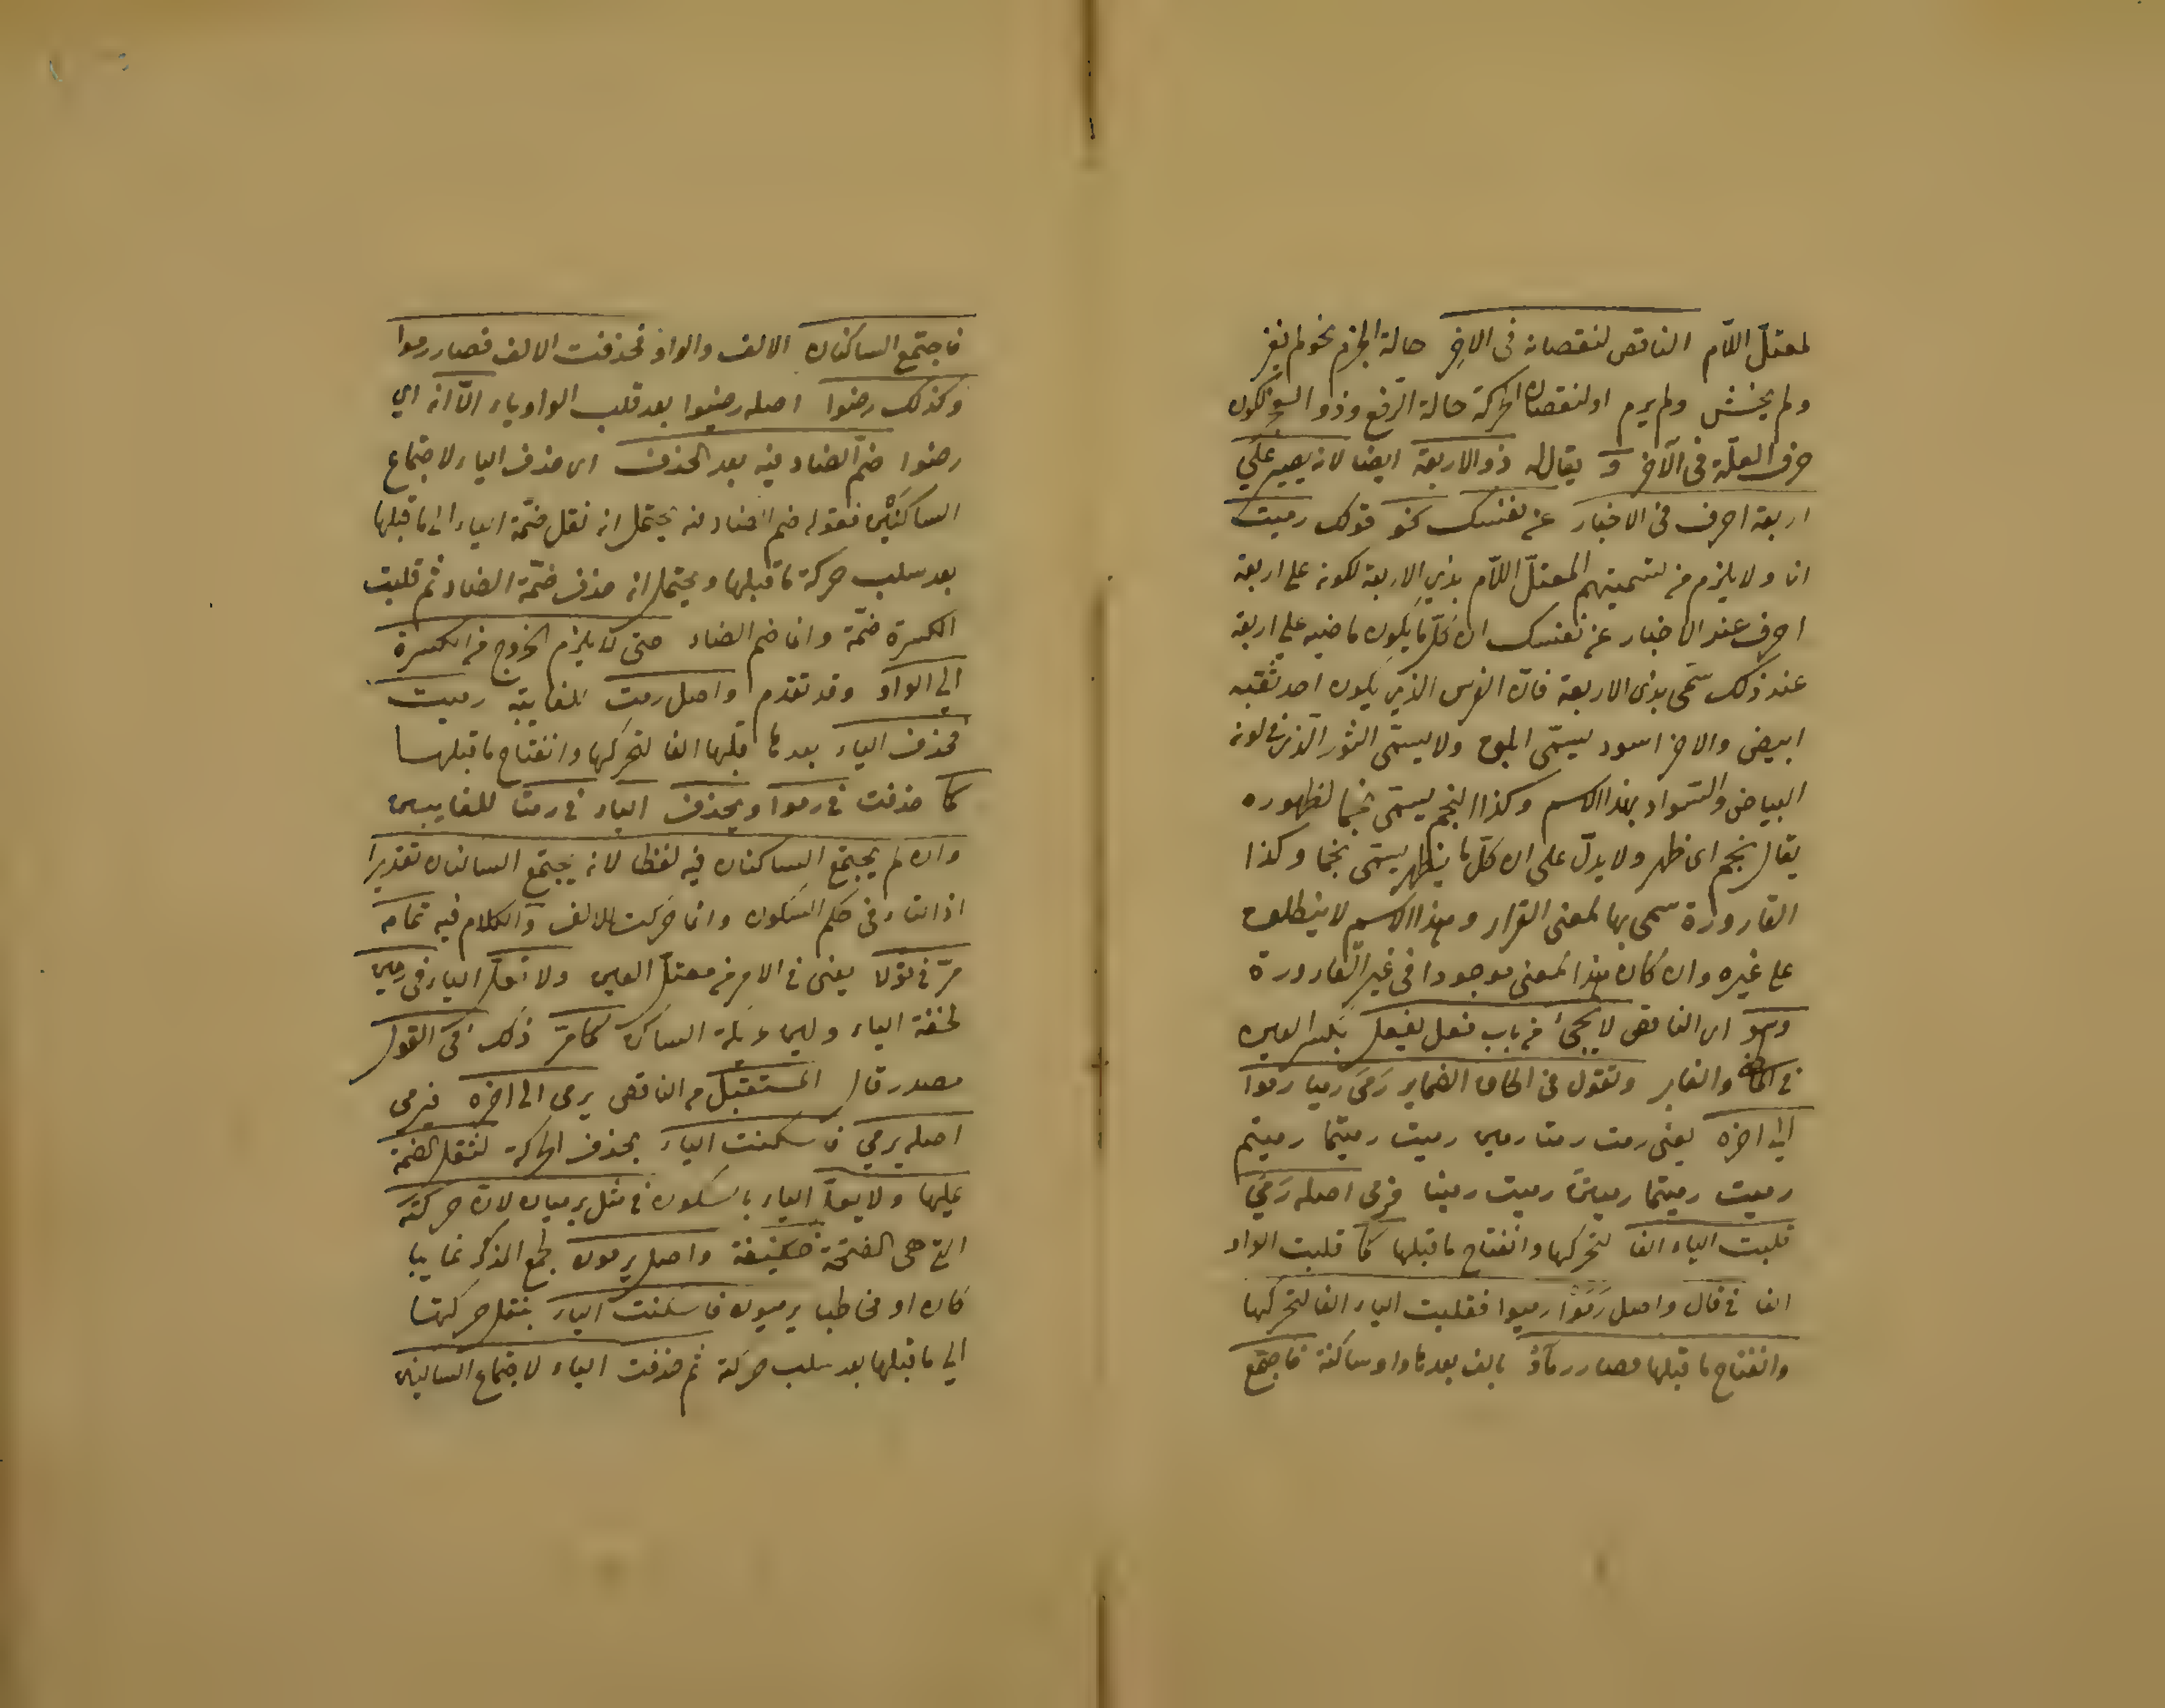 لمعتلّ اللّام الناقص لنقصانه فى الاخِر حالة الجزم نحو لم يغز
ولم يخش ولم يرم او لنقصان الحركة حالة الرّفع وذو السو لكون
حرف العلّة فى الآخر و يقال له ذو الاربعة ايضا لانه يصير على
اربعة احرف فى الاخبار عن نفسك نحو قولك رميت
انا ولا يلزم من تسميتهم المعتلّ اللّام بذي الاربعة لكونه على اربعة
احرف عند الاخبار عن نفسك ان كلّ ما يكون ماضيه على اربعة
عند ذلك سمّى بذى الاربعة فانّ الفرس الذي يكون احد
ابيض والاخر اسود يسمّى ابلق ولا يسمّى الثور الّذى فى لونه
البياض والسّواد بهذا الاسم وكذا النجم يسمّى نجما لظهوره
يقال نجم اى ظهر ولا يدلّ على ان كلّ ما يظهر يسمّى نجما وكذا
القارورة سمى بها لمعنى القرار وهذا الاسم لا ينطلق
على غيره وان كان هذا المعنى موجودا فى غير القارورة
وهو اى الناقص لا يجئ من باب فعل يفعل بكسر العين
فى الماضى والغابر وتقول فى الحاق الضماير رَمَى رميا رموا
الى اخره يعنى رمت رمتا رمين رميت رميتما رميتم
رميت رميتما رميتنّ رميت رمينا فرمى اصله رَمَيَ
قلبت الياء الفا لتحركها وانفتاح ما قبلها كما قلبت الواو
الفا فى قال واصل رَمَوْا رميوا فقلبت الياء الفا لتحركها
وانفتاح ما قبلها فصار رماوْ بالف بعدها واو ساكنة فاجتمع
فاجتمع الساكنان الالف والواو فحذفت الالف فصار رموا
وكذلك رضوا اصله رضيوا بعد قلب الواو ياء الّا انه اى
رضوا ضمّ الضاد فيه بعد الحذف اى حذف الياء لاجتماع
الساكنَيْن فقوله ضم الضاد فيه يحتمل انه نقل ضمّة الياء الى ما قبلها
بعد سلب حركة ما قبلها ويحتمل انه حذف ضمّة الضاد ثم قلبت
الكسرة ضمّة وانما ضم الضاد حتى لا يلزم الخروج من الكسرة
الى الواو وقد تقدم واصل رمت للغايبة رميت
فحذف الياء بعدما قلبها الفا لتحركها وانفتاح ما قبلها
كما حذفت فى رموا ويحذف الياء فى رمتا للغايبين
وان لم يجتمع الساكنان فيه لفظا لانه يجتمع الساكنان تقديرا
اذ التاء فى حكم السكون وانما حركت للالف والكلام فيه تمامه
مرّ فى قولا يعنى فى الامر من معتلّ العين ولا تعلّ الياء فى رمين
لخفة الياء ولين عريكة الساكن كما مرّ ذلك فى القول
مصدر قال المستقبل من الناقص يرمى الى اخره فيرمى
اصله يرمي فاسكنت الياء بحذف الحركة لثقل الضمة
عليها ولا يعلّ الياء بالسكون فى مثل يرميان لانّ حركته
التى هى الفتحة خفيفة واصل يرمون لجمع المذكر غايبا
كان او مخاطبا يرميون فاسكنت الياء بنقل حركتها
الى ما قبلها بعد سلب حركة ثم حذفت الياء لاجتماع الساكنين